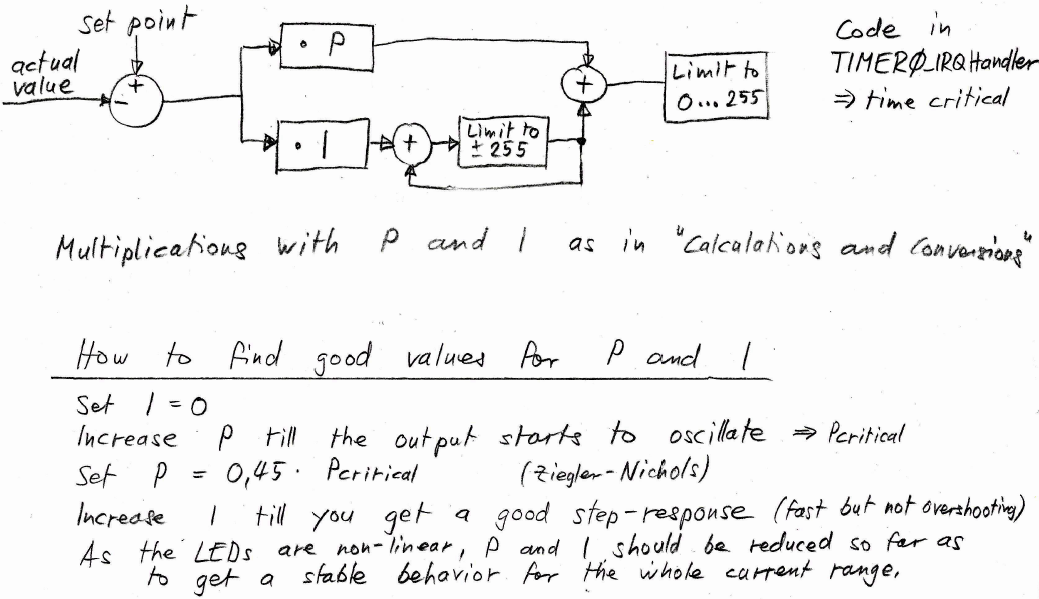 set point
actual
value
+
-
· P
· I
+
Limit to
± 255
+
Limit to
0... 255
Code in
TIMER0_IRQHandler
⇒ time critical
Multiplications with P and I as in "Calculations and Conversions"
How to find good values for P and I
Set I = 0
Increase P till the output starts to oscillate ⇒ Pcritical
Set P = 0,45 · Pcritical (Ziegler-Nichols)
Increase I till you get a good step-response (fast but not overshooting)
As the LEDs are non-linear, P and I should be reduced so far as
to get a stable behavior for the whole current range.